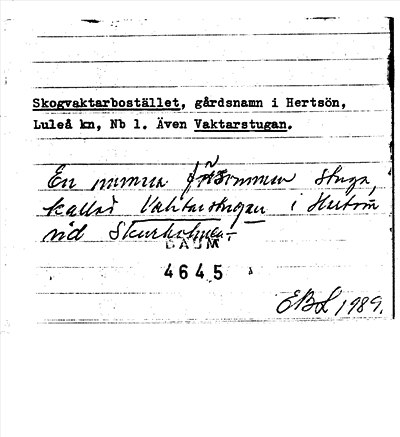 Skogvaktarbostället, gårdsnamn i Hertsön,
Luleå kn, Nb l. Även Vaktarstugan.
En numera försvunnen stuga,
kallad Vaktarstugan i Hertsön
vid Skurholmen.
DAUM
4645
EBL 1989.